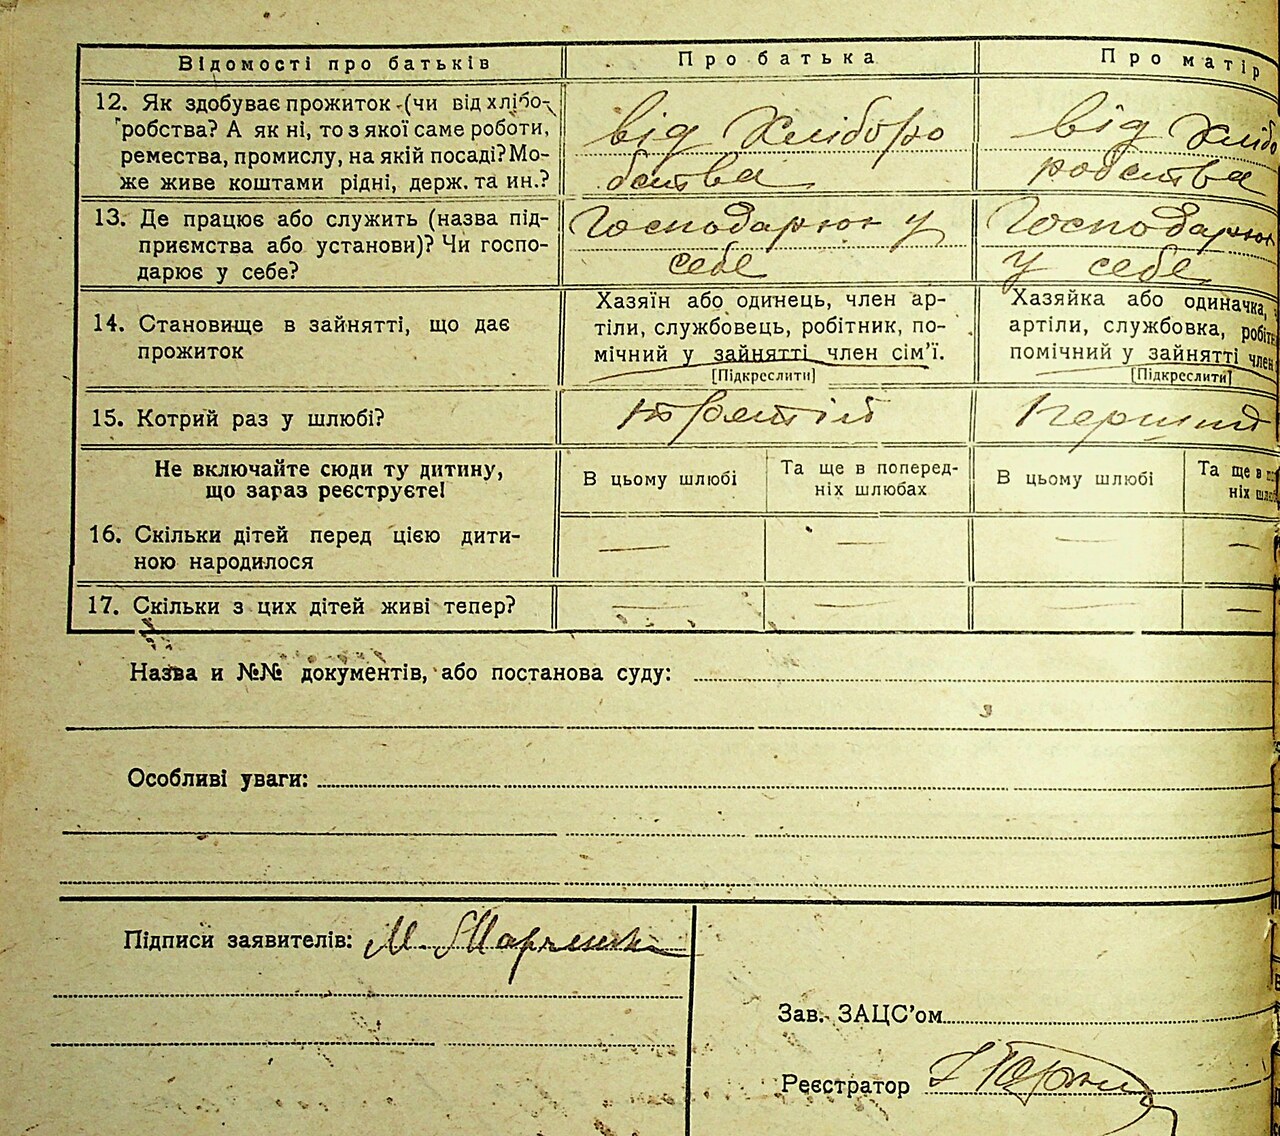 Відомості про батьків
Про батька
Про матір
12. Як здобуває прожиток (чи від хлібо-
робства? А як ні, то з якої саме роботи,
ремества, промислу, на якій посаді? Мо-
же живе коштами рідні, держ. та ин.?
від Хліборо
бства
від Хлібо
робства
13. Де працює або служить (назва під-
приємства або установи)? Чи госпо-
дарює у себе?
Господарюю у
себе
Господарюю
у себе
14. Становище в зайнятті, що дає
прожиток
Хазяїн або одинець, член ар-
тіли, службовець, робітник, по-
мічний у зайнятті член сім'ї.
[Підкреслити]
Хазяйка або одиначка,
артіли, службовка, робітн
помічний у зайнятті член
[Підкреслити]
15. Котрий раз у шлюбі?
третій
Перший
Не включайте сюди ту дитину,
що зараз реєструєте!
В цьому шлюбі
Та ще в поперед-
ніх шлюбах
В цьому шлюбі
Та ще в по
ніх шлюб
16. Скільки дітей перед цією дити-
ною народилося
— — — —
17. Скільки з цих дітей живі тепер?
— — — —
Назва и №№ документів, або постанова суду:
Особливі уваги:
Підписи заявителів: М. Марченко
Зав. ЗАЦС'ом
Реєстратор